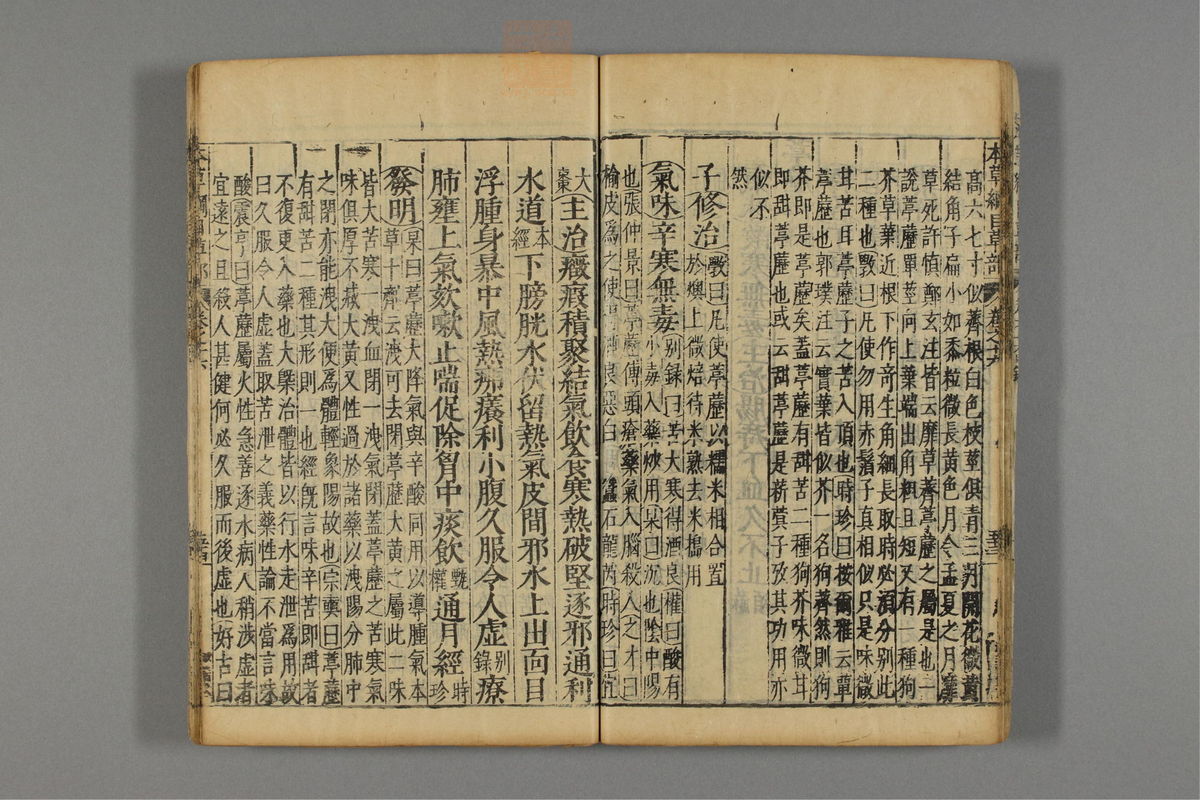 高六七寸似薺根白色枝莖俱青三月開花微黃
結角子扁小如黍粒微長黃色月令孟夏之月靡
草死許慎鄭玄注皆云靡草薺葶藶之屬是也一
說葶藶單莖向上葉端出角粗且短又有一種狗
芥草葉近根下作奇生角細長取時必須分別此
二種也斅曰凡使勿用赤鬚子真相似只是味微
甘苦耳葶藶子之苦入頂也時珍曰按爾雅云蕇
葶藶也郭璞注云實葉皆似芥一名狗薺然則狗
芥即是葶藶矣蓋葶藶有甜苦二種狗芥味微甘
即甜葶藶也或云甜葶藶是菥蓂子考其功用亦
似不
然
子修治斅曰凡使葶藶以糯米相合置
於燠上微焙待米熟去米搗用
氣味辛寒無毒别録曰苦大寒得酒良權曰酸有
小毒入藥炒用杲曰沉也陰中陽
也張仲景曰葶藶傅頭瘡藥氣入腦殺人之才曰
榆皮爲之使得酒良惡白殭蠶石龍芮時珍曰宜
大
棗主治癥瘕積聚結氣飲食寒熱破堅逐邪通利
水道本
經下膀胱水伏留熱氣皮間邪水上出面目
浮腫身暴中風熱疿癢利小腹久服令人虛别
錄療
肺壅上氣欬嗽止喘促除胷中痰飲甄
權通月經時
珍
發明杲曰葶藶大降氣與辛酸同用以導腫氣本
草十齊云洩可去閉葶藶大黃之屬此二味
皆大苦寒一洩血閉一洩氣閉蓋葶藶之苦寒氣
味俱厚不㦲大黃又性過於諸藥以洩陽分肺中
之閉亦能洩大便爲體輕象陽故也宗奭曰葶藶
有甜苦二種其形則一也經旣言味辛苦即甜者
不復更入藥也大槩治體皆以行水走泄爲用故
曰久服令人虛蓋取苦泄之義藥性論不當言味
酸震亨曰葶藶屬火性急善逐水病人稍涉虛者
宜遠之且殺人甚健何必久服而後虛也好古曰